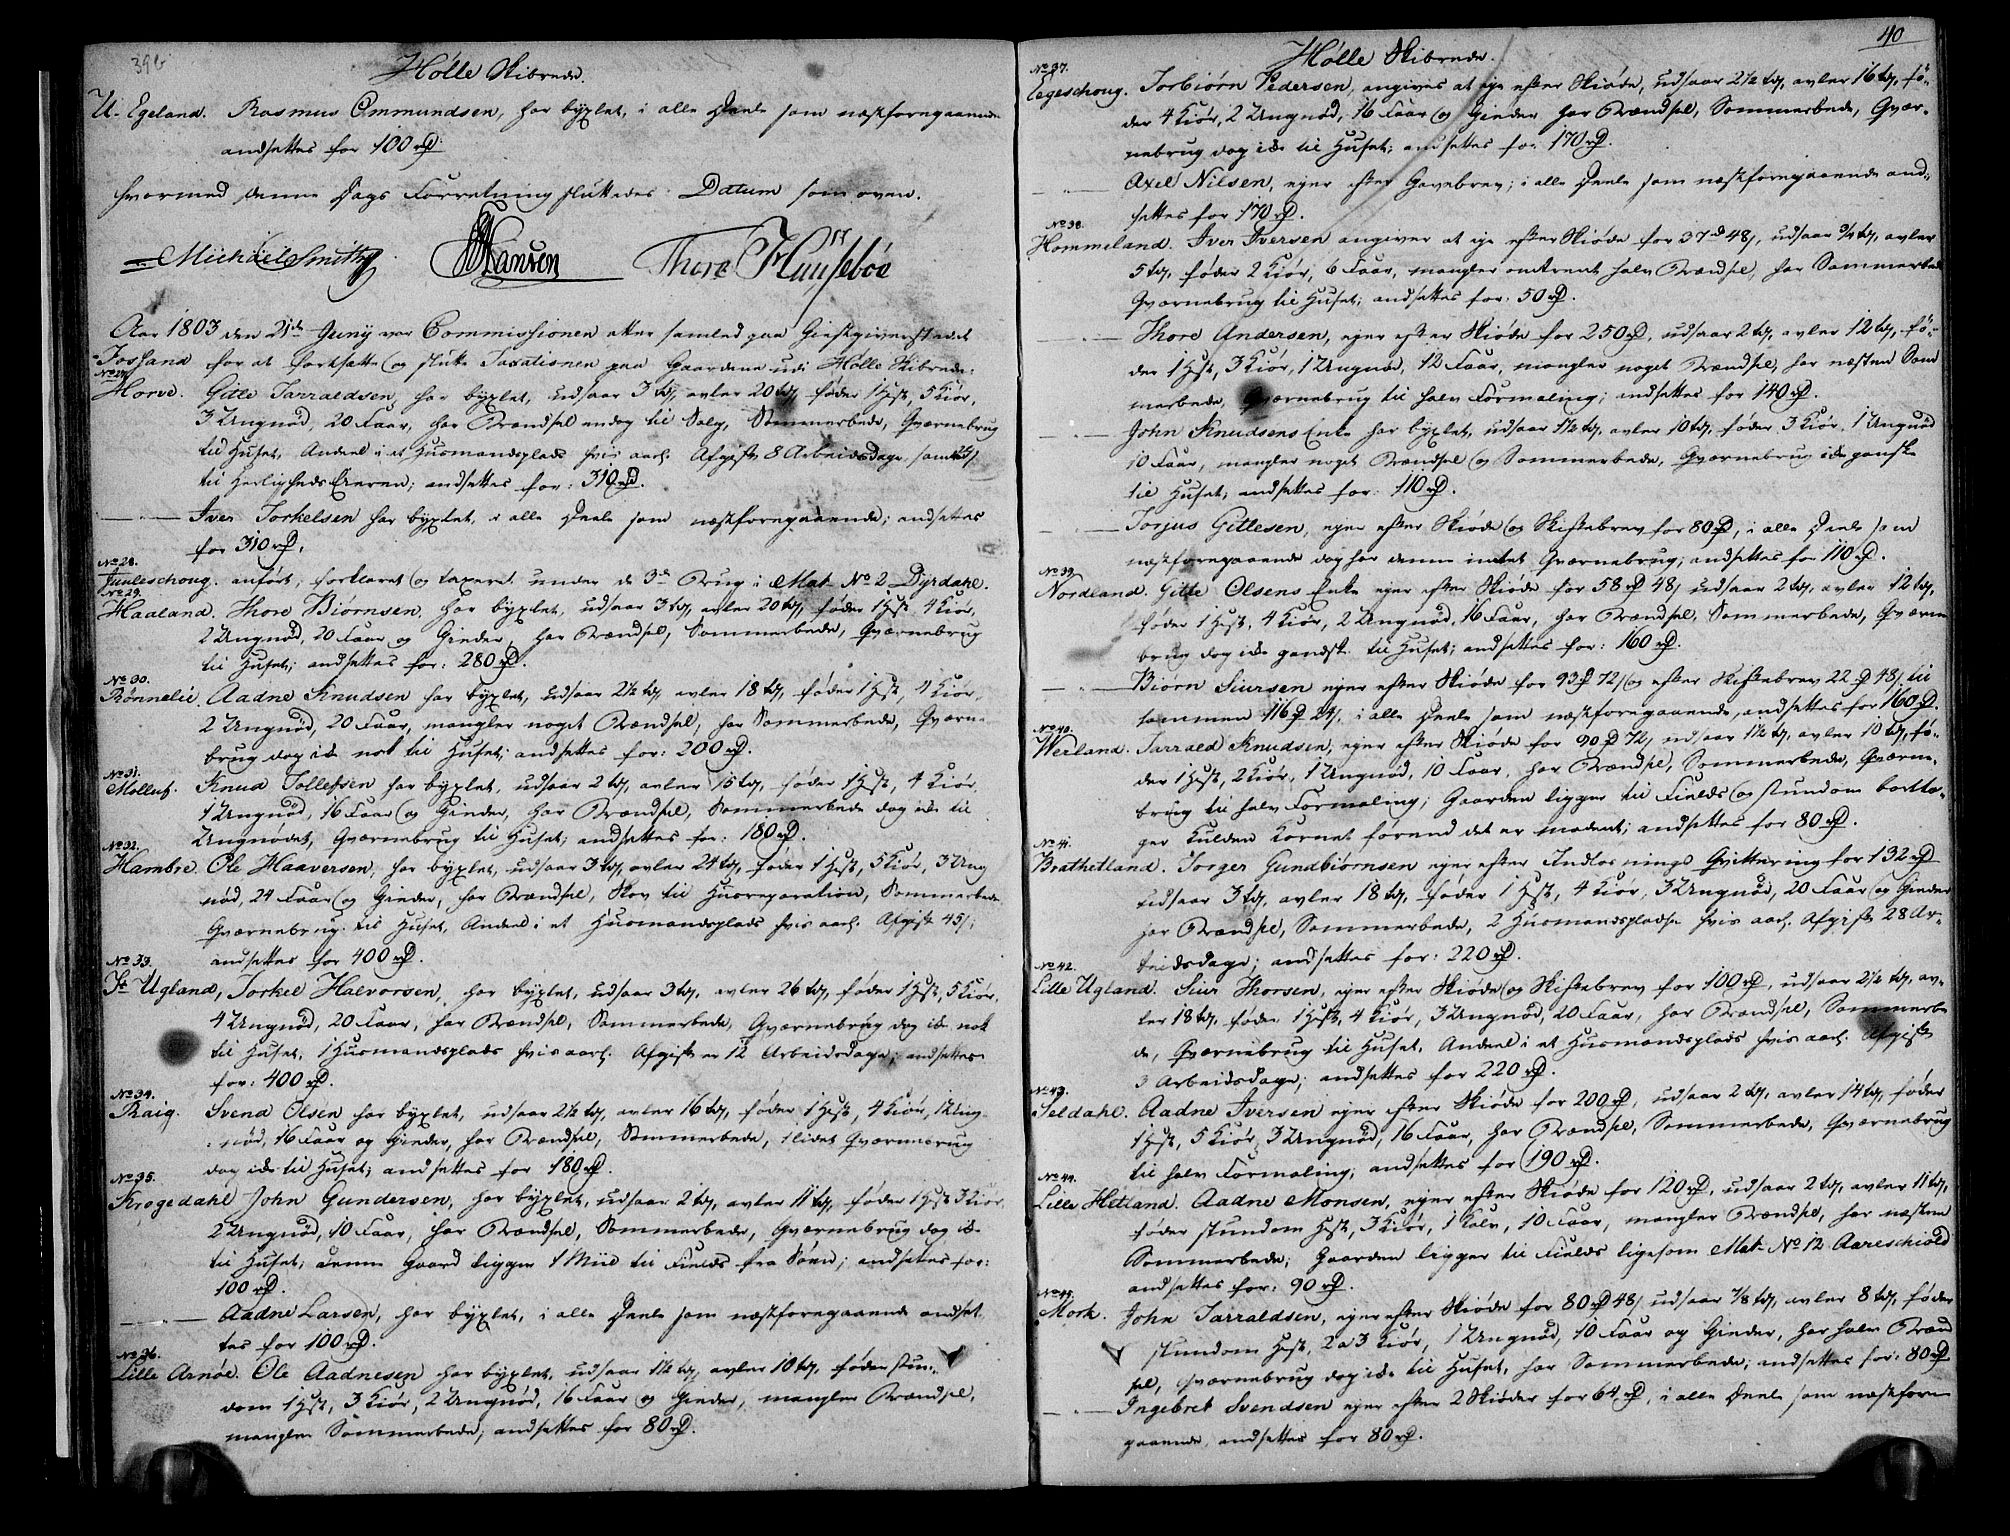 39b
Hölle Skibrede.
U. Egeland. Rasmus Ommundsen, har byxlet, i alle Deele som næstforegaaende
andsettes for 100 rd.
hvormed denne Dags Forretning sluttedes. Datum som oven.
Michael Smith Hansen Thore Huusebøe
Aar 1803 den 21de Junÿ var Commissionen atter samlet paa Giestgiverstedet
Fossand for at fortsette og slutte Taxationen paa Gaardene udi Hölle Skibrede.
No 27.
Horve. Gitle Tarraldsen, har byxlet, udsaar 3 td, avler 20 td, føder 1 Hest, 5 Kiör,
3 Ungnød, 20 Faar, har Brændsel endog til Salg, Sommerbede, Qværnebrug
til Huset, Andeel i et Huusmandsplads hvis aarl. Afgift 8 Arbeidsdage, samt
til Herligheds Eieren; andsettes for: 310 rd.
Iver Torkelsen har byxlet, i alle Deele som næstforegaaende; andsettes
for 310 rd.
No 28.
Juuleschoug. anført, forklaret og taxeret under de 3de Brug i Mat. No 2 Dyrdahl.
No 29.
Haaland. Thore Biørnsen, har byxlet, udsaar 3 td, avler 20 td, føder 1 Hest, 4 Kiör,
2 Ungnød, 20 Faar og Gieder, har Brændsel, Sommerbede, Qværnebrug
til Huset; andsettes for: 280 rd.
No 30.
Rönnelie. Aadne Knudsen har byxlet, udsaar 2½ td, avler 18 td, føder 1 Hest, 4 Kiör,
2 Ungnød, 20 Faar, mangler noget Brændsel, har Sommerbede, Qværne-
brug dog ike nok til Huset; andsettes for: 200 rd.
No 31.
Molluf. Knud Tollefsen har byxlet, udsaar 2 td, avler 15 td, føder 1 Hest, 4 Kiör,
1 Ungnød, 16 Faar og Gieder, har Brændsel, Sommerbede dog ike til
Ungnødet, Qværnebrug til Huset; andsettes for: 180 rd.
No 32.
Hambre. Ole Haaversen, har byxlet, udsaar 3 td, avler 24 td, føder 1 Hest, 5 Kiör, 3 Ung
nød, 24 Faar og Gieder, har Brændsel, Skov til Huusreparation, Sommerbede
Qværnebrug til Huset, Andeel i et Huusmandsplads hvis aarl. Afgift 45 s;
andsettes for 400 rd.
No 33.
St. Ugland, Torkel Halvorsen, har byxlet, udsaar 3 td, avler 26 td, føder 1 Hest, 5 Kiör,
4 Ungnød, 20 Faar, har Brændsel, Sommerbede, Qværnebrug dog ike nok
til Huset, 1 Huusmandsplads hvis aarl. Afgift er 12 Arbeidsdage; andsettes
for: 400 rd.
No 34.
Raig. Svend Olsen har byxlet, udsaar 2½ td, avler 16 td, føder 1 Hest, 4 Kiör, 1 Ung
nød, 16 Faar og Gieder, har Brændsel, Sommerbede, 1 lidet Qværnebrug
dog ike til Huset; andsettes for 180 rd.
No 35.
Krogedahl John Gundersen, har byxlet, udsaar 2 td, avler 11 td, føder 1 Hest 3 Kiör,
2 Ungnød, 10 Faar, har Brændsel, Sommerbede, Qværnebrug dog ike
til Huset; denne Gaard ligger 1 Miil til Fields fra Søen; andsettes for:
100 rd.
Aadne Larsen, har byxlet, i alle Deele som næstforegaaende andset
tes for 100 rd.
No 36.
Lille Arnøe. Ole Aadnesen har byxlet, udsaar 1½ td, avler 10 td, føder stun-
dom 1 Hest, 3 Kiör, 2 Ungnød, 16 Faar og Gieder, mangler Brændsel,
mangler Sommerbede; andsettes for 80 rd.
40
Hölle Skibrede.
No 37.
Eegeschoug. Torbiørn Pedersen, angives at eje efter Skiøde, udsaar 2½ td, avler 16 td, fø-
der 4 Kiör, 2 Ungnød, 16 Faar og Gieder har Brændsel, Sommerbede, Qvær-
nebrug dog ike til Huset; andsettes for 170 rd.
Axel Nilsen, ejer efter Gavebrev; i alle Deele som næstforegaaende and-
settes for 170 rd.
No 38.
Hommeland. Iver Iversen angiver at eje efter Skiøde for 37 rd 48 s, udsaar ¾ td, avler
5 td, føder 2 Kiör, 6 Faar, mangler omtrent halv Brændsel, har Sommerbede
Qværnebrug til Huset; andsettes for: 50 rd.
Thore Andersen, ejer efter Skiøde for 250 rd, udsaar 2 td, avler 12 td, fø-
der 1 Hest, 3 Kiör, 1 Ungnød, 12 Faar, mangler noget Brændsel, har næsten Som
merbede, Qværnebrug til halv Formaling; andsettes for 140 rd.
John Knudsens Enke har byxlet, udsaar 1½ td, avler 10 td, føder 3 Kiör, 1 Ungnød
10 Faar, mangler noget Brændsel og Sommerbede, Qværnebrug ike ganske
til Huset; andsettes for: 110 rd.
Torjus Gitlesen, ejer efter Skiøde og Skiftebrev for 80 rd, i alle Deele som
næstforegaaende dog har denne intet Qværnebrug; andsettes for 110 rd.
No 39.
Nordland. Gitle Olsens Enke ejer efter Skiøde for 58 rd 48 s, udsaar 2 td, avler 12 td,
føder 1 Hest, 4 Kiör, 2 Ungnød, 16 Faar, har Brændsel, Sommerbede, Qværne
brug dog ike gandske til Huset; andsettes for: 160 rd.
Biörn Siursen ejer efter Skiøde for 93 rd 72 s og efter Skiftebrev 22 rd 48 s, til
sammen 116 rd 24 s, i alle Deele som næstforegaaende, andsettes for 160 rd.
No 40.
Werland. Tarrald Knudsen, ejer efter Skiøde for 90 rd 72 s, udsaar 1½ td, avler 10 td, fø-
der 1 Hest, 2 Kiör, 1 Ungnød, 10 Faar, har Brændsel, Sommerbede, Qværne-
brug til halv Formaling; Gaarden ligger til Fields og stundom borttа-
ger Kulden Kornet forend det er modent; andsettes for 80 rd.
No 41.
Brathetland. Torger Gundbiörnsen ejer efter Indløsnings Qvittering for 132 rd
udsaar 3 td, avler 18 td, føder 1 Hest, 4 Kiör, 3 Ungnød, 20 Faar og Gieder
har Brændsel, Sommerbede, 2 Huusmandspladse hvis aarl. Afgift 28 Ar-
beidsdage; andsettes for: 220 rd.
No 42.
Lille Ugland. Siur Thorsen, ejer efter Skiøde og Skiftebrev for 100 rd, udsaar 2½ td, av-
ler 18 td, føder 1 Hest, 4 Kiör, 3 Ungnød, 20 Faar, har Brændsel, Sommerbe
de, Qværnebrug til Huset, Andeel i et Huusmandsplads hvis aarl. Afgift
3 Arbeidsdage; andsettes for 220 rd.
No 43.
Seldahl. Aadne Iversen ejer efter Skiøde for 200 rd, udsaar 2 td, avler 14 td, føder
1 Hest, 5 Kiör, 3 Ungnød, 16 Faar, har Brændsel, Sommerbede, Qværnebrug
til halv Formaling; andsettes for 190 rd.
No 44.
Lille Hetland. Aadne Monsen, ejer efter Skiøde for 120 rd, udsaar 2 td, avler 11 td,
føder stundom Hest, 3 Kiör, 1 Kalv, 10 Faar, mangler Brændsel, har næsten
Sommerbede; Gaarden ligger til Fields ligesom Mat. No 12 Aareschiold
andsettes for: 90 rd.
No 45.
Mork. John Tarraldsen, ejer efter Skiøde for 80 rd 48 s, udsaar 7/8 td, avler 8 td, føder
stundom Hest, 2 a 3 Kiör, 1 Ungnød, 10 Faar og Gieder, har halv Brænd
sel, Qværnebrug dog ike til Huset, har Sommerbede; andsettes for: 80 rd
Ingebret Svendsen ejer efter 2 Skiøder for 64 rd, i alle Deele som næstfore
gaaende, andsettes for 80 rd.